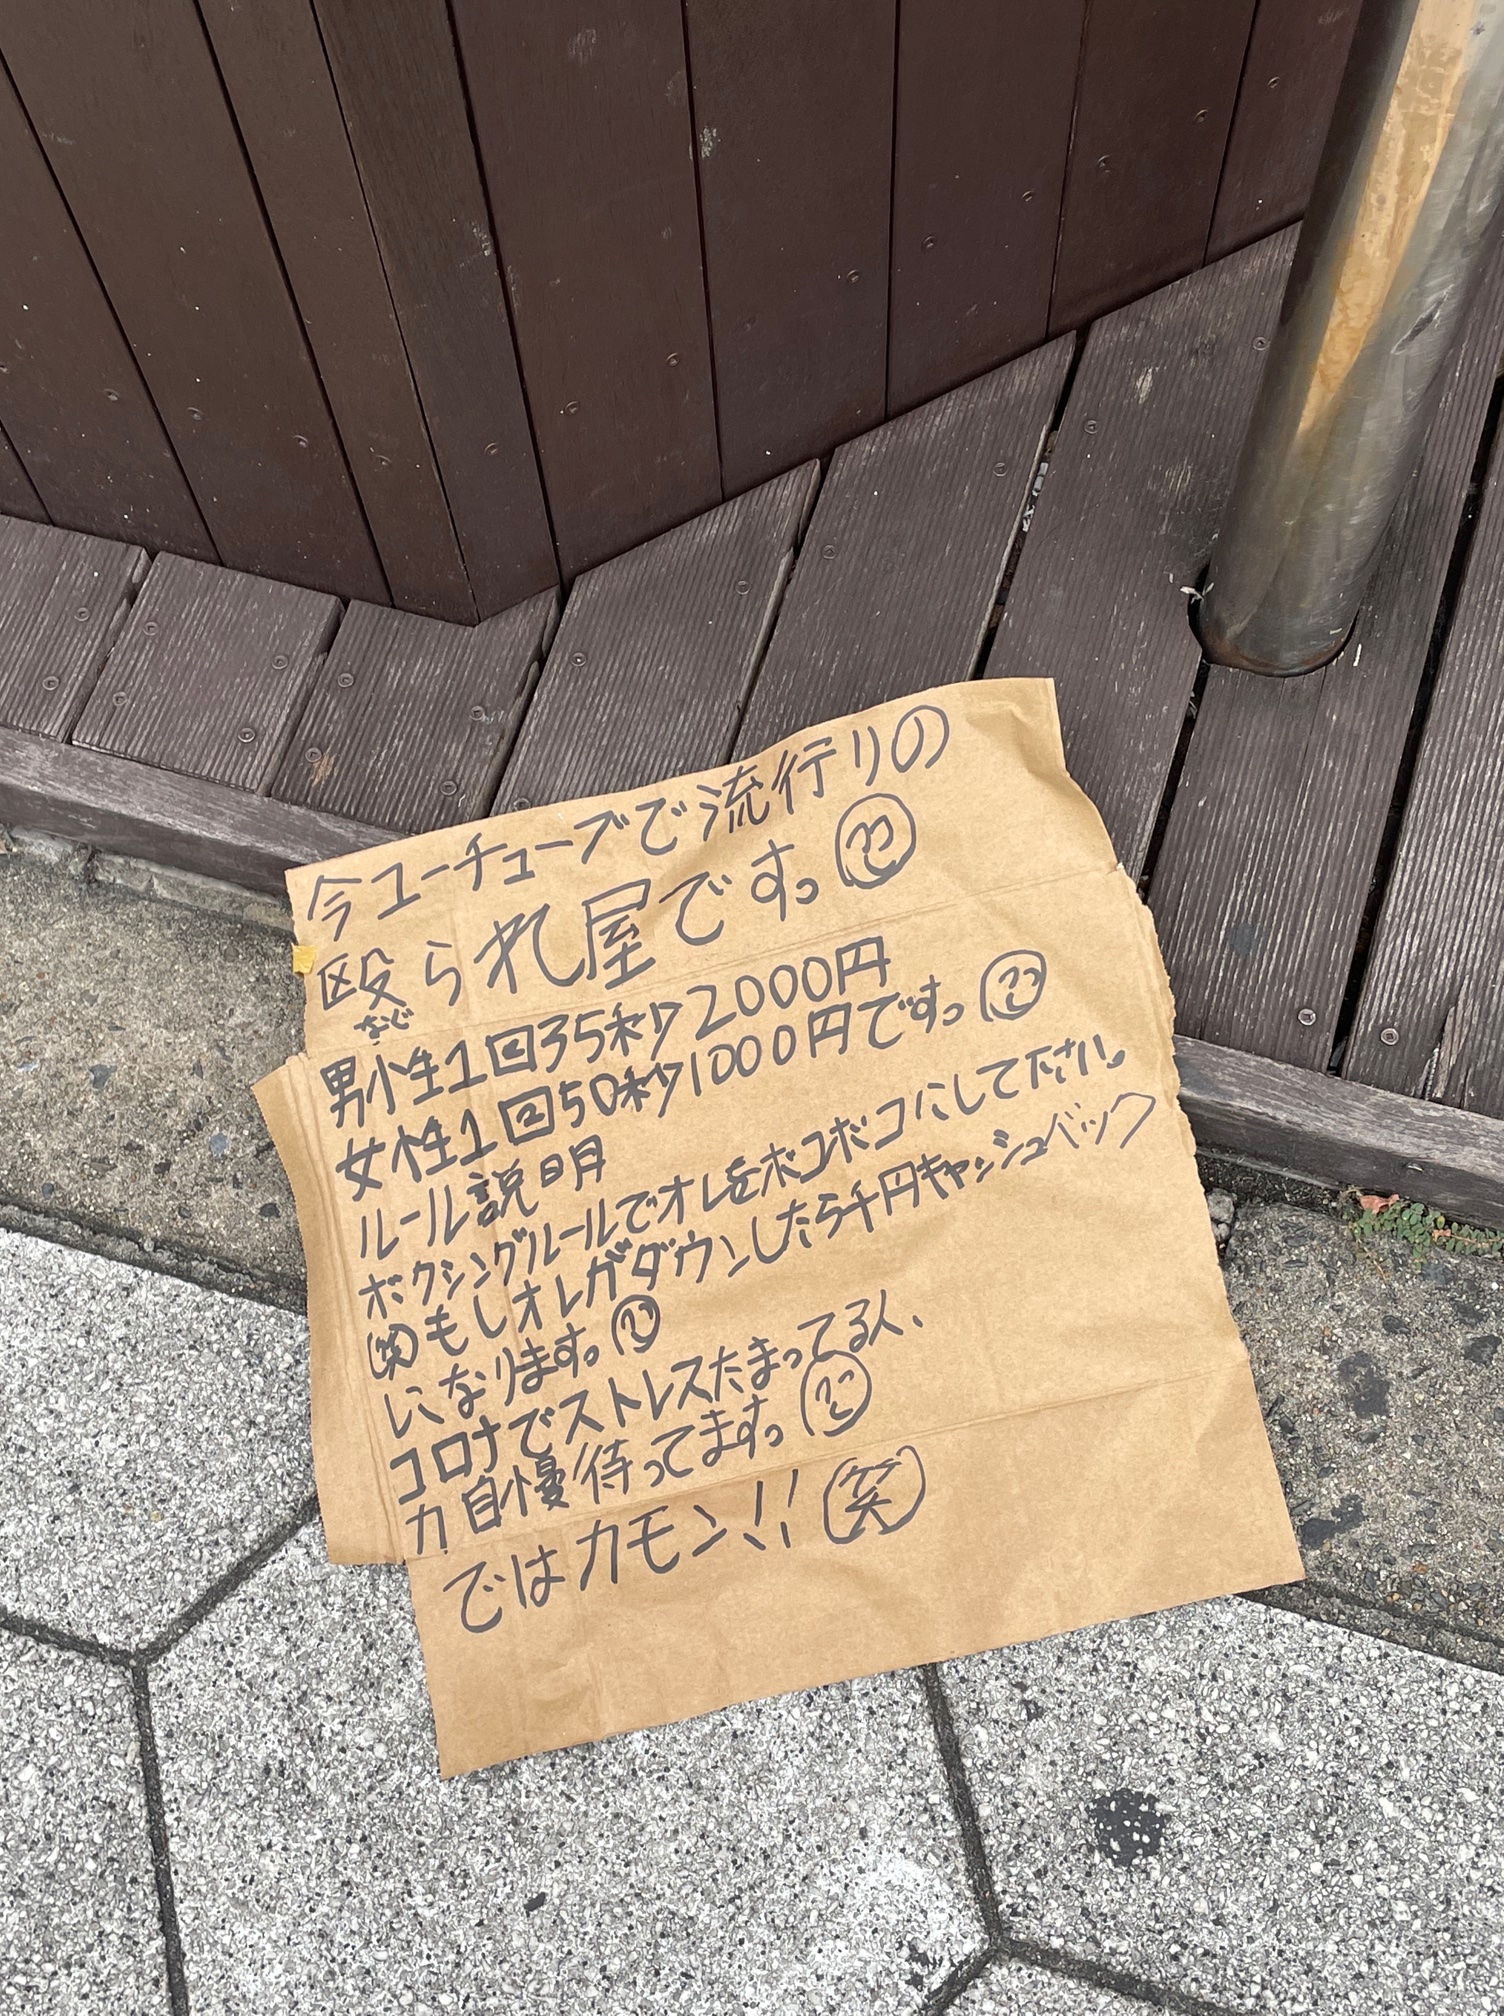 今ユーチューブで流行りの
殴られ屋ですっ
なぐ
男性1回35秒2000円
女性1回50秒1000円ですっ
ルール説明
ボクシングルールでオレをボコボコにして下さい。
(笑)もしオレがダウンしたら千円キャッシュバック
になりますっ
コロナでストレスたまってる人、
力自慢待ってますっ
ではカモン!!(笑)